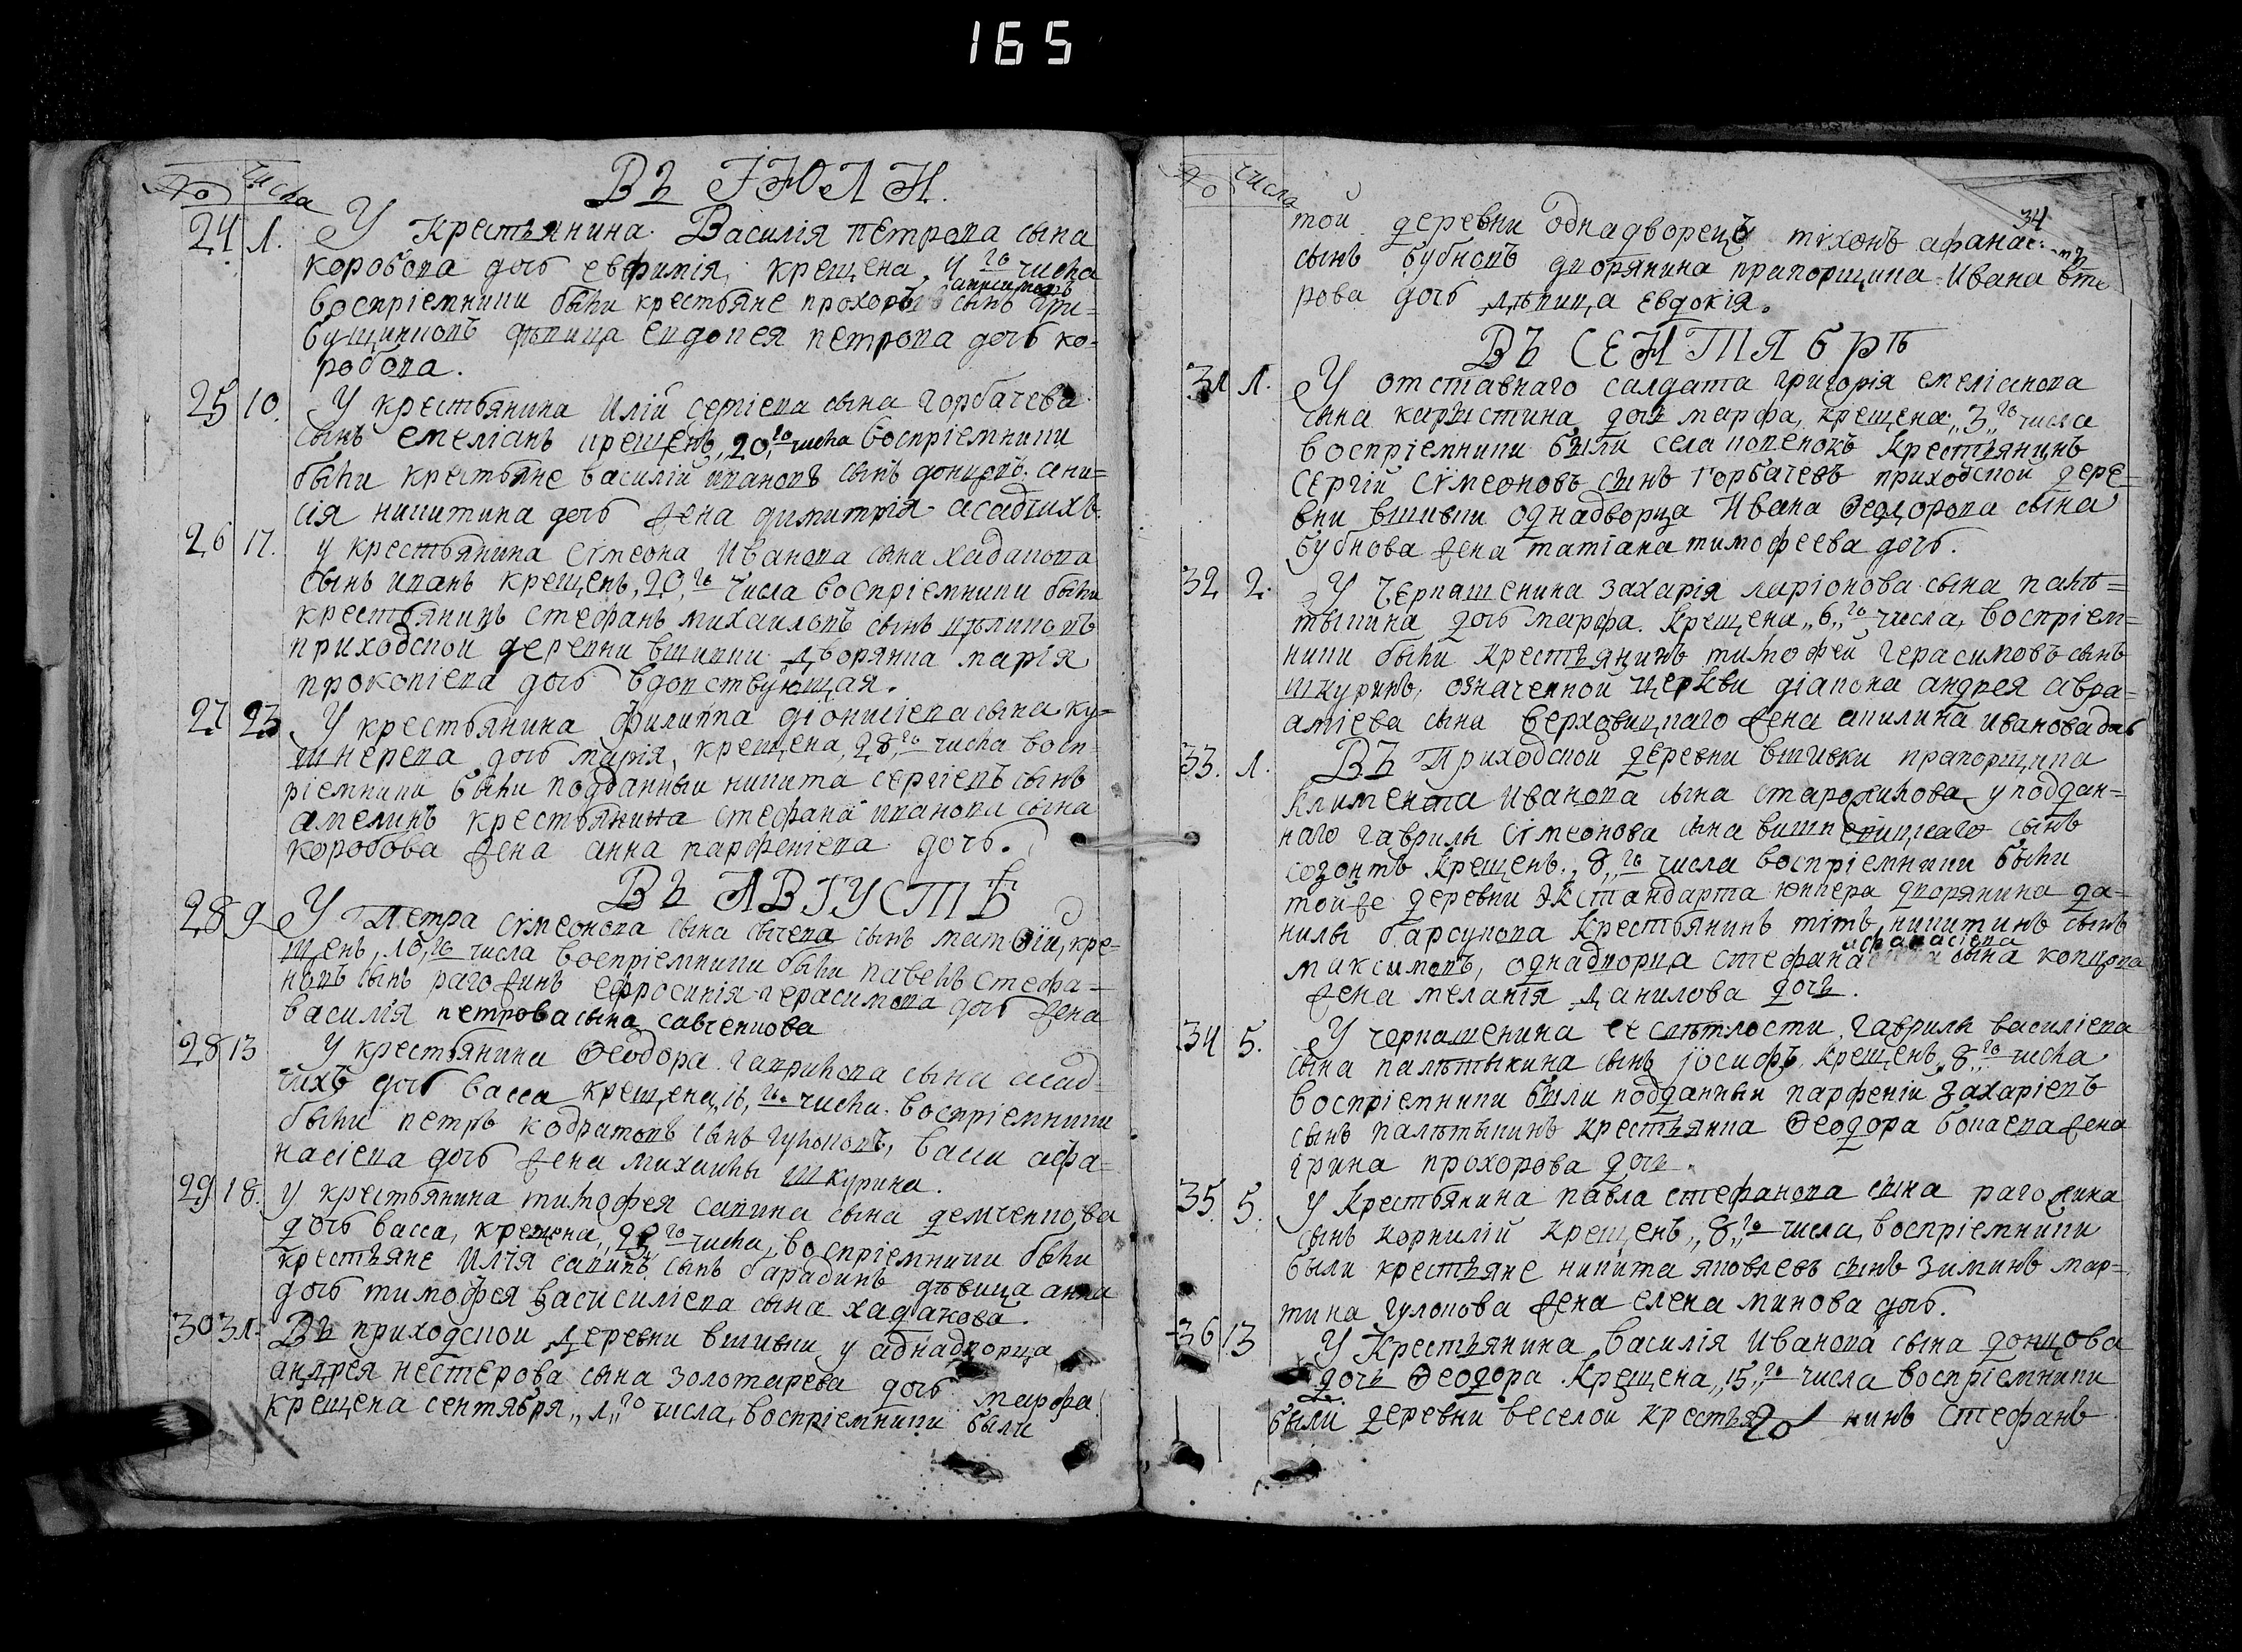 165
№ числа
ВЪ ІЮЛИ.
24 1. У крестьянина Василія петрова сына
коробова дочь евфимія, крещена, 4 го числа
воспріемники были крестьяне прохоръ сынъ гри=
бущинковъ дѣвица евдокея петрова дочь ко-
робова.
25 10. У крестьянина Илїи сергіева сына горбачева
сынъ емеліанъ крещенъ, 20, го числа воспріемники
были крестьяне василїй ивановъ сынъ донцовъ. ани=
сія никитина дочь жена димитрія асадчихъ.
26 17. у крестьянина сѵмеона Иванова сына хадакова
сынъ иванъ крещенъ, 20, го числа воспріемники были
крестьянинъ стефанъ михаиловъ сынъ
приходской деревни вшивки дворянка марія
прокопіева дочь вдовствующая.
27 23 У крестьянина филиппа діонисіева сына ку=
шнерева дочь марія, крещена, 28, го числа восп=
ріемники были подданный никита сергіевъ сынъ
амелинъ крестьянина стефана иванова сына
коробова жена анна парфеніева дочь.
ВЪ АВГУСТѢ
28 9 У Петра сѵмеонова сына сычева сынъ матѳій, кре=
щенъ, 10, го числа воспріемники были павелъ стефа=
новъ сынъ рагожинъ ефросинія герасимова дочь жена
василія петрова сына савченкова
28 13 У крестьянина Ѳеодора гаврилова сына асад=
чихъ дочь васса крещена, 16, го числа. воспріемники
были петръ кодратовъ сынъ гулоковъ, васса афа=
насіева дочь жена михаилы шкурина.
29 18. у крестьянина тимофея савина сына демченкова
дочь васса, крещена, го числа, воспріемники были
крестьяне Илія савинъ сынъ барадинъ дѣвица анна
дочь тимофея васисиліева сына хадакова.
30 31. Въ приходской деревни вшивки у аднадворца
андрея нестерова сына золотарева дочь марфа
крещена сентября „1„ го числа, воспріемники были
№ числа
34
той деревни однадворецъ тихонъ афанас
сынъ бубновъ дворянина прапорщика Ивана
рова дочь дѣвица евдокія.
ВЪ СЕНТЯБРѢ
31 1. У отставнаго салдата григорія емеліанова
сына дочь марфа, крещена „3„ го числа
воспріемники были села попенокъ крестьянинъ
сергій сѵмеоновъ сынъ горбачевъ приходской дере=
вни вшивки однадворца Ивана Ѳеодорова сына
бубнова жена татіана тимофеева дочь.
32 2. У черкашенина захарія ларіонова сына палѣ=
тыкина дочь марфа. крещена „6„ го числа, воспріем=
ники были крестьянинъ тимофей герасимовъ сынъ
шкуринъ, означенной церкви діакона андрея авра=
аміева сына верховицкаго жена акилина иванова дочь
33. 1. ВЪ Приходской деревни вшивки прапорщика
климента Иванова сына старожилова у поддан=
наго гаврилы сѵмеонова сына сынъ
созонтъ крещенъ, 8, го числа воспріемники были
тойже деревни экстандарта юнкера дворянина да=
нилы барсукова крестьянинъ титъ никитинъ сынъ
максимовъ, однадворца стефана афанасіева сына копцова
жена меланія данилова дочь.
34 5. У черкашенина ее свѣтлости, гаврилы василіева
сына палѣтыкина сынъ іосифъ крещенъ, „8„ го числа
воспріемники были подданный парфеній захаріевъ
сынъ палѣтыкинъ крестьянина Ѳеодора жена
ірина прохорова дочь.
35. 5. У крестьянина павла стефанова сына рагожина
сынъ корнилій крещенъ, „8„ го числа, воспріемники
были крестьяне никита яковлевъ сынъ зиминъ мар=
тина гулокова жена елена минова дочь.
36 13 У Крестьянина василія Иванова сына донцова
дочь Ѳеодора крещена „15„ го числа воспріемники
были деревни веселой крестьянинъ стефанъ
20